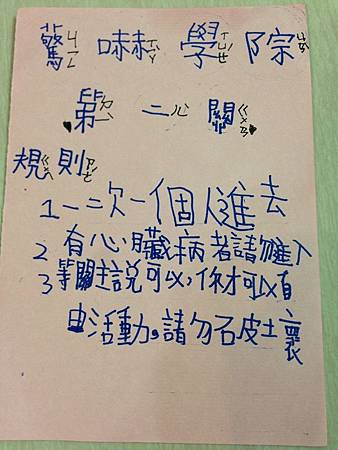 驚ㄐㄧㄥ 嚇ㄒㄧㄚˋ 學ㄒㄩㄝˊ 院ㄩㄢˋ
第ㄉㄧˋ 二ㄦˋ 關ㄍㄨㄢ
規ㄍㄨㄟ 則ㄗㄜˊ
1 一次一個人進去
2 有心臟病者請勿進入
3 等關主說可以,你才可以自
由活動。請勿破壞